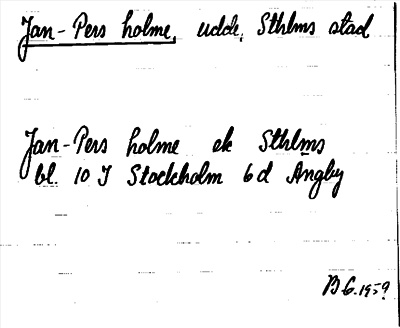 Jan-Pers holme, udde, Sthlms stad
Jan-Pers holme ek Sthlms
bl. 10 I Stockholm 6 d Ängby
B G. 1959